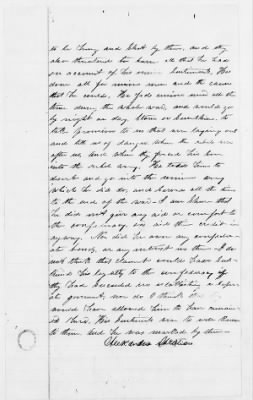 to be hung and shot by them, and they
also threatened to burn all that he had
on account of his union sentiments. He
done all for union men and the cause
that he could. He fed union men all the
time during the whole war, and would go
by night or day, storm or sunshine, to
take provision to us that was laying out
and tell us of danger when the rebels was
after us. And when they forced his son
into the rebel army. He told him to
desert and go into the union army
which he did do, and served all the time
to the end of the war. I am sure that
he did not give any aid or comfort to
the confederacy, nor aid their credit in
anyway. Nor did he own any confeder-
ate bonds, or any interest in them. I do
not think that claimant could have
his loyalty to the confederacy if
they had succeeded in establishing a seper-
ate government, nor do I think
would have allowed him to have remain-
ed here. His sentiments was to well known
to them. And he was marked by them